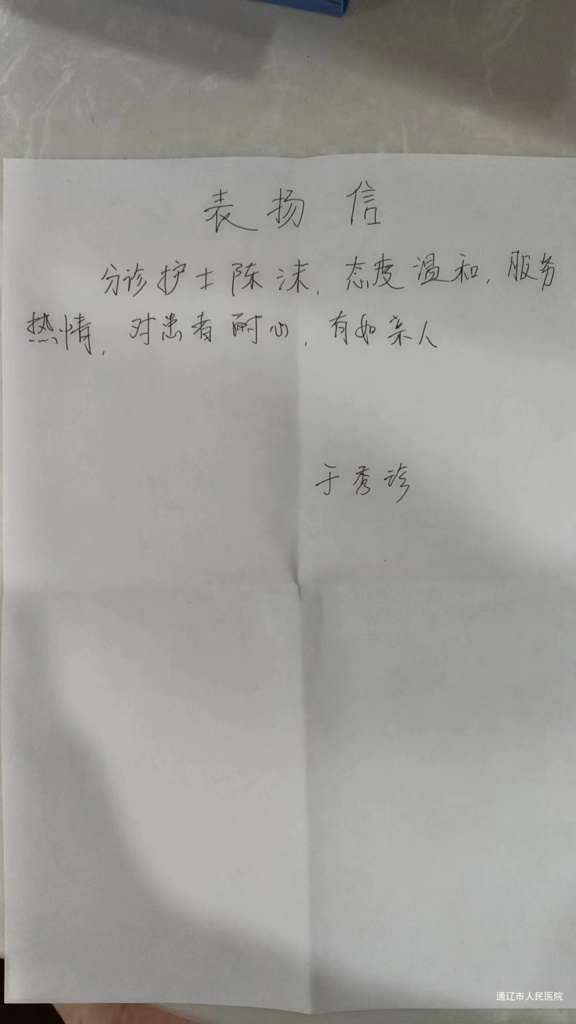 表扬信
分诊护士陈沫，态度温和，服务
热情，对患者耐心，有如亲人
于秀诊
通辽市人民医院